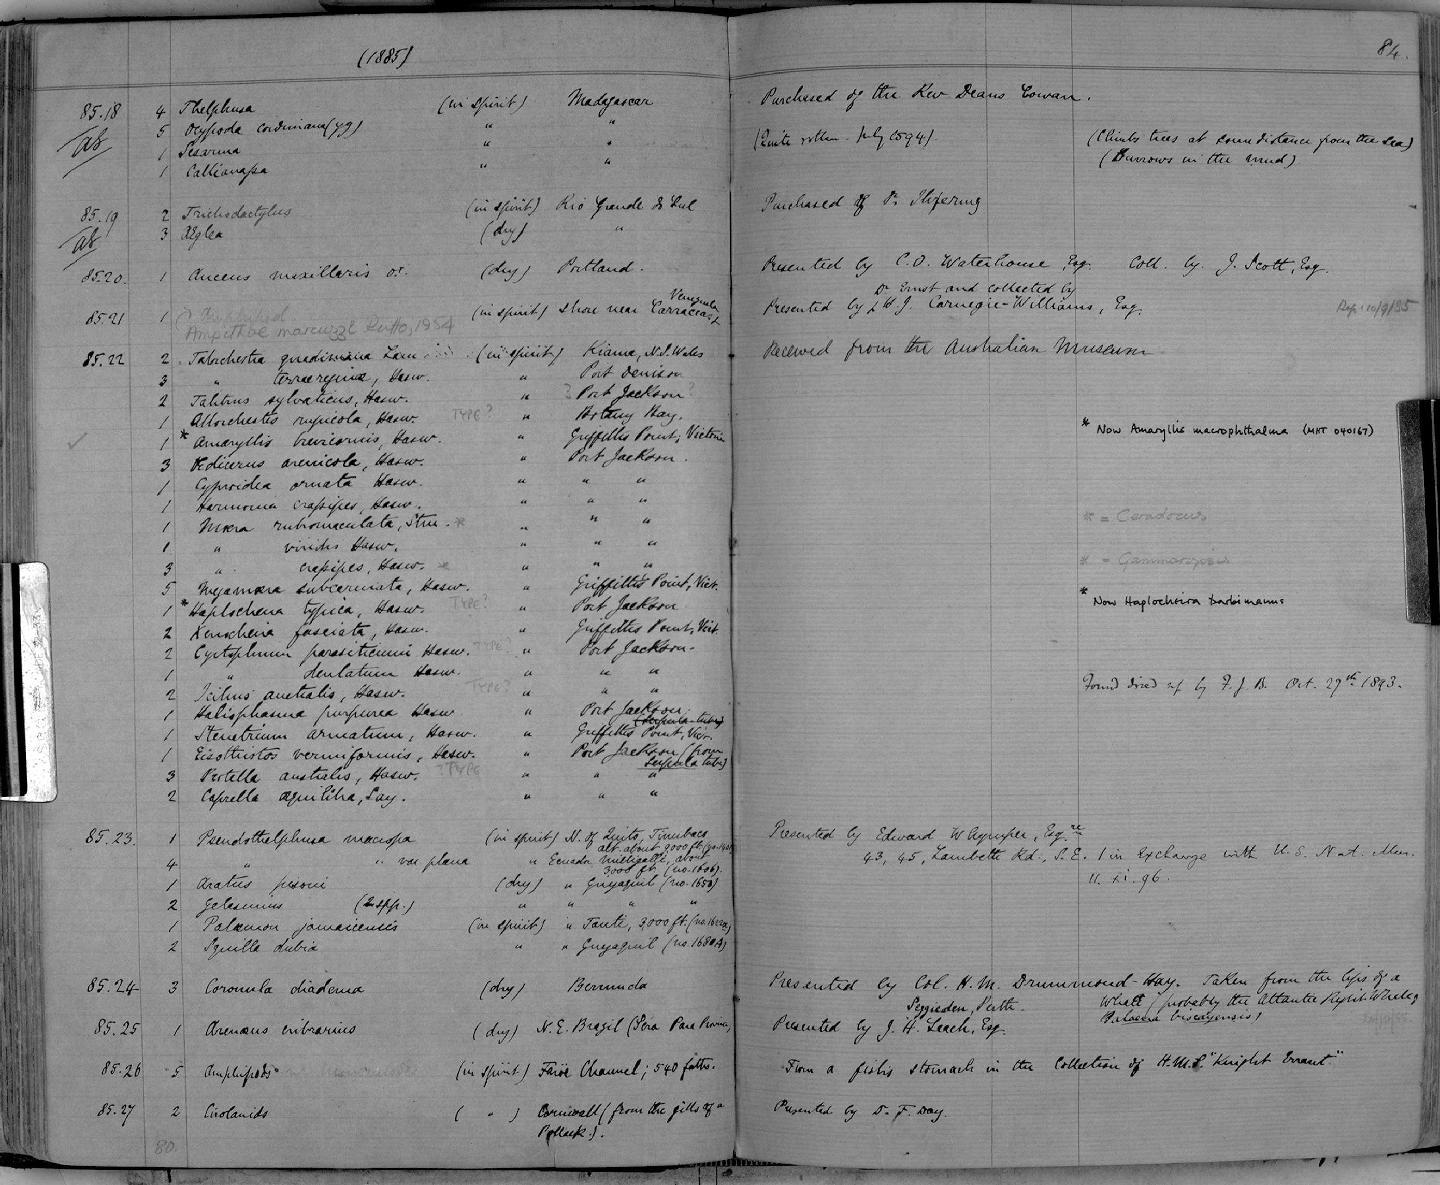 (1885)
84.
85.18 4 Thelphusa (in spirit) Madagascar Purchased of the Rev Deans Cowan.
5 Ocypoda cordimana (yg) " " (Quite rotten - July 1894) (Climbs trees at some distance from the sea)
1 Sesarma " " (Burrows in the mud)
1 Callianassa " "
85.19 2 Trichodactylus (in spirit) Rio Grande do Sul Purchased of Dr. Ihering
3 Æglea (dry) "
85.20 1 Anceus maxillaris (dry) Portland. Presented by C.O. Waterhouse, Esq. Coll. by J. Scott, Esq.
Dr Ernst and collected by
85.21 1 Ampithoe marcuzzii Ruffo, 1954 (in spirit) Shore near Carraccas, Venezuela Presented by W.J. Carnegie-Williams, Esq.
85.22 2 Talorchestia quadrimana (in spirit) Kiama, N.S. Wales Received from the Australian Museum
3 " terraereginæ, Hasw. " Port Denison
2 Talitrus sylvaticus, Hasw. " ? Port Jackson ?
1 Allorchestes rupicola, Hasw. TYPE? " Botany Bay.
1 * Amaryllis brevicornis, Hasw. " Griffiths Point, Victoria * Now Amaryllis macrophthalma (MHT 040167)
3 Œdicerus arenicola, Hasw. " Port Jackson.
1 Cyproidea ornata Hasw. " " "
1 Harmonia crassipes, Hasw. " " "
1 Mœra rubromaculata, Stm. * " " " * = Ceradocus
1 " viridis Hasw. " " "
3 " crassipes, Hasw. * " " " * = Gammaropsis
5 Megamœra subcarinata, Hasw. " Griffiths Point, Vict.
1 * Haplocheira typica, Hasw. TYPE? " Port Jackson * Now Haplocheira barbimanus
2 Xenocheira fasciata, Hasw. " Griffiths Point, Vict.
2 Cyrtophium parasiticum Hasw. TYPE? " Port Jackson.
1 " dentatum Hasw. " " "
2 Icilius australis, Hasw. TYPE? " " " Found dried up by F.J.B. Oct. 27th 1893.
1 Haliophasma purpurea Hasw " Port Jackson
1 Stenetrium armatum, Hasw. " Griffiths Point, Vict.
1 Eisothistos vermiformis, Hasw. " Port Jackson (from Serpula tube)
3 Protella australis, Hasw. ? TYPE " " "
2 Caprella æquilibra, Say. " " "
85.23 1 Pseudothelphusa macropa (in spirit) N. of Quito, Tumbaco alt. about 9000 ft Presented by Edward Whymper, Esqre
4 " " var plana " Ecuador Milligalli, about 3000 ft. (no. 1606) 43, 45, Lambeth Rd., S.E. 1 in Exchange with U.S. Nat. Mus.
1 Aratus pisoni (dry) " Guyaquil (no. 1650) 11. xi. 96.
2 Gelasimus (2 spp.) " " " "
1 Palæmon jamaicensis (in spirit) " 3,000 ft.
2 Squilla dubia " " Guyaquil
85.24 3 Coronula diadema (dry) Bermuda Presented by Col. H.M. Drummond-Hay. Taken from the lips of a
Seggieden, Perth. Whale (probably the Atlantic Right Whale,
Balaena biscayensis)
85.25 1 Arenæus cribrarius (dry) N.E. Brazil Presented by J.H. Leech, Esq.
85.26 5 Amphipods (in spirit) Faroe Channel; 540 faths. From a fish's stomach in the Collection of H.M.S "Knight Errant"
85.27 2 Cirolanids ( " ) Cornwall (from the gills of a Presented by Dr. F. Day.
Pollack.).
80.